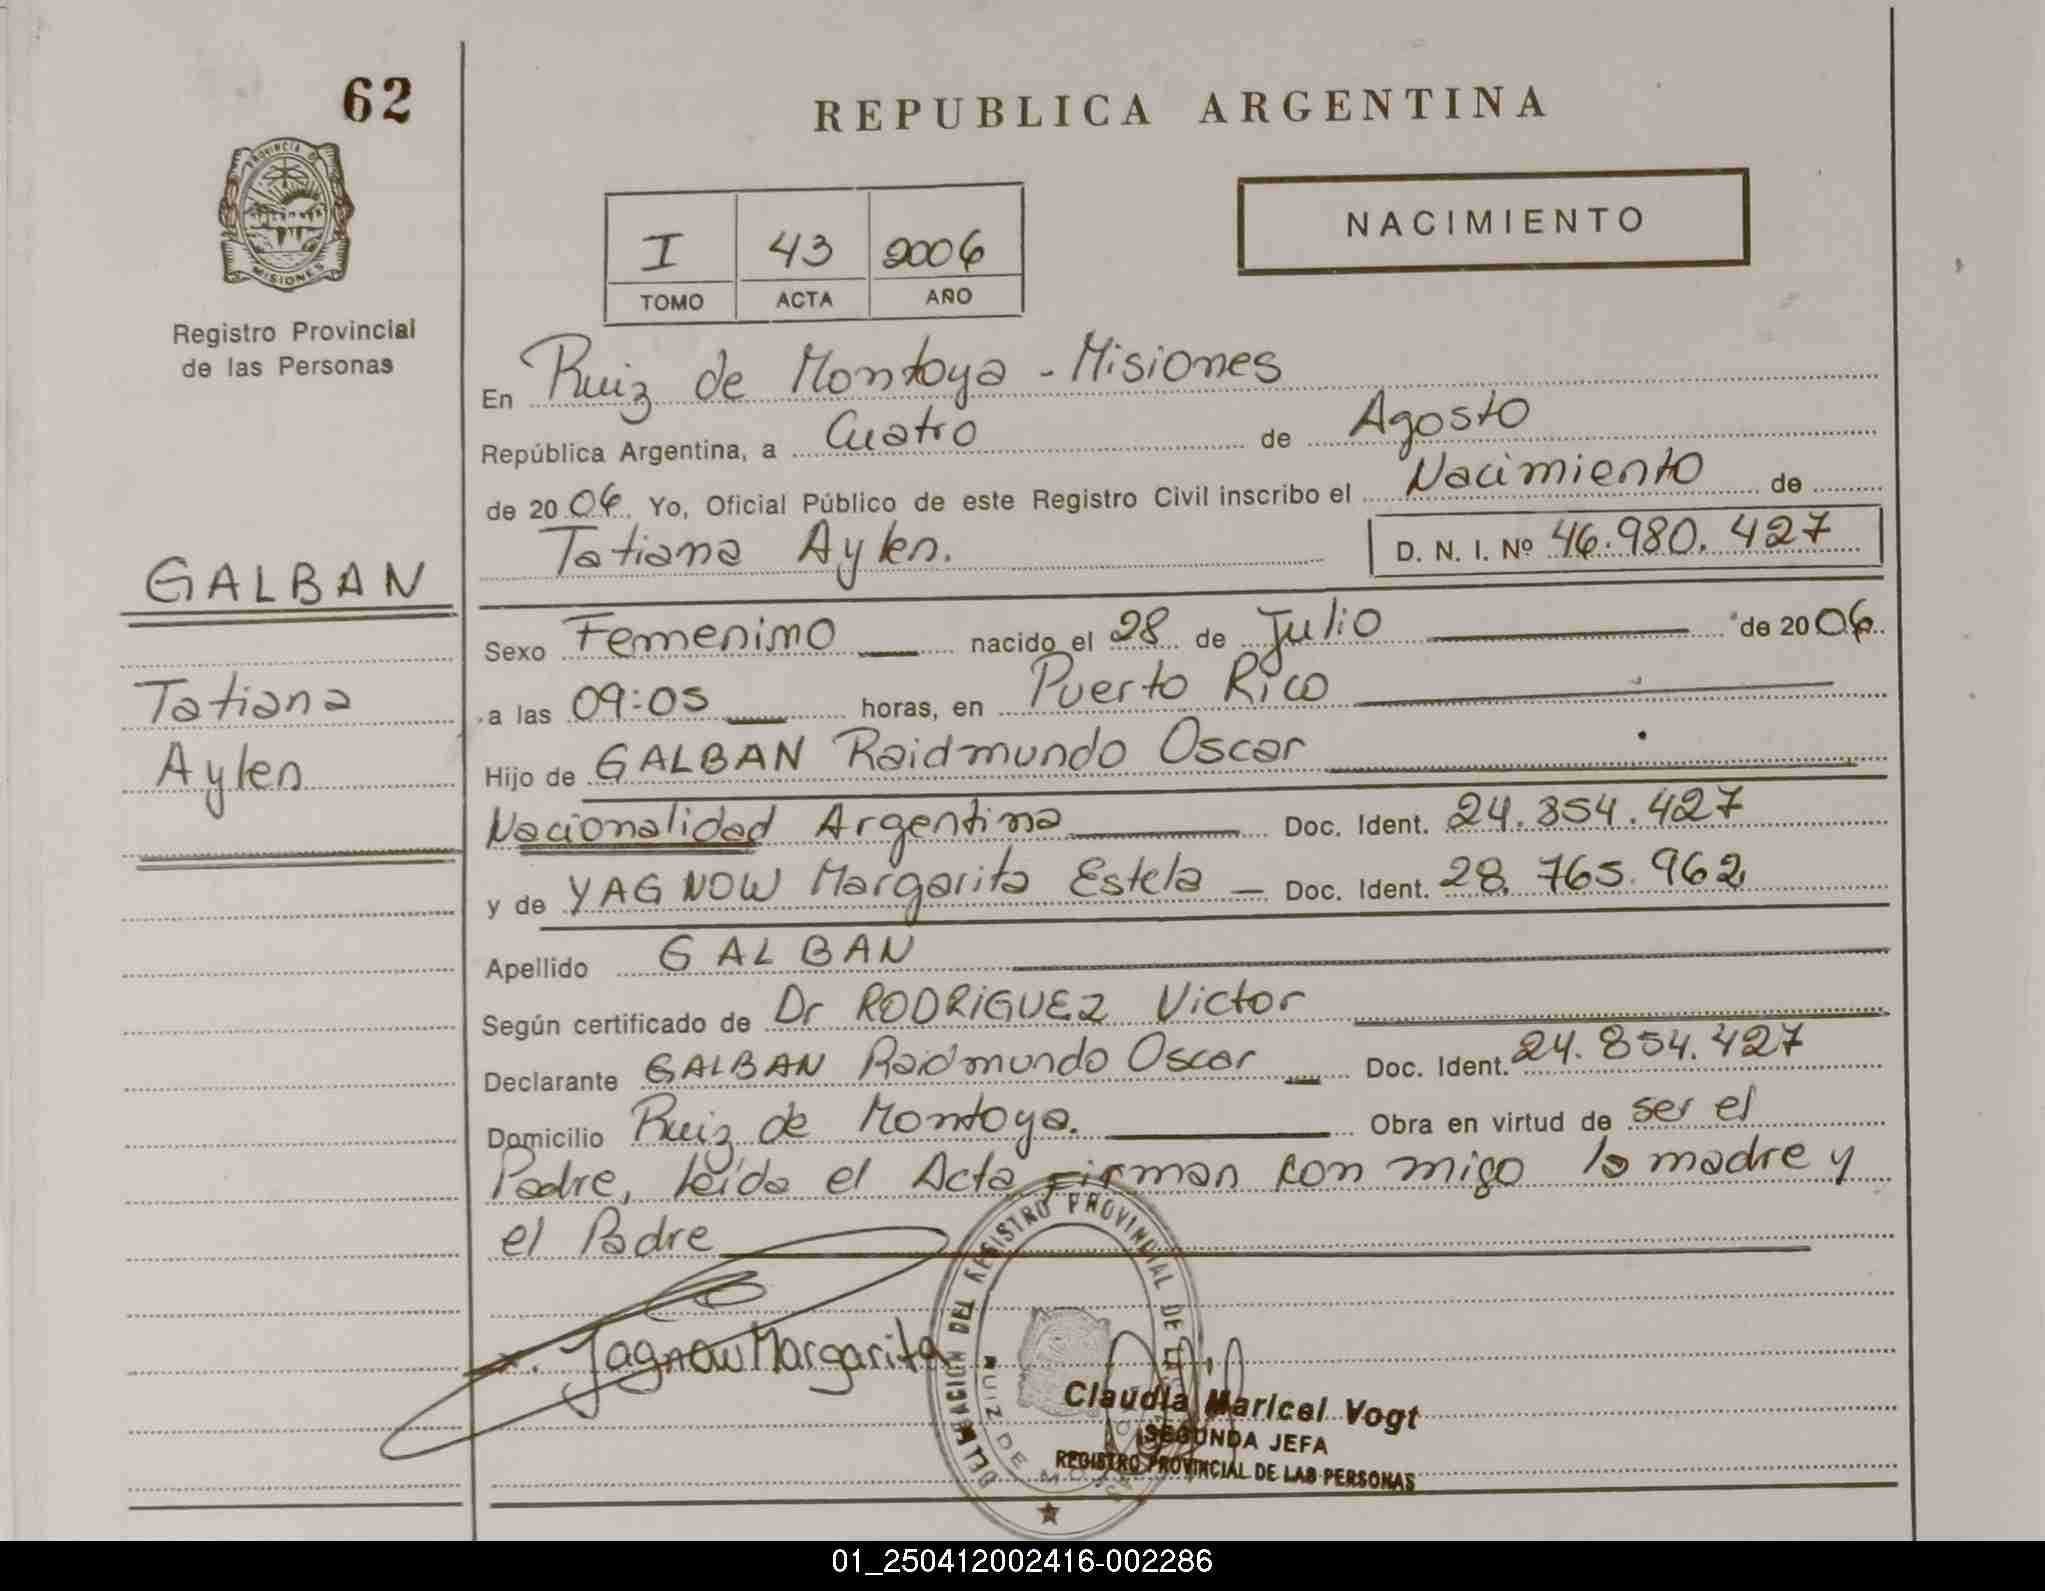 62
PROVINCIA D
MISIONES
Registro Provincial
de las Personas
REPUBLICA ARGENTINA
I 43 2006
TOMO ACTA AÑO
NACIMIENTO
En Ruiz de Montoya - Misiones
República Argentina, a Cuatro de Agosto
de 2006 Yo, Oficial Público de este Registro Civil inscribo el Nacimiento de
Tatiana Aylen. D. N. I. Nº 46.980.427
GALBAN
Tatiana
Aylen
Sexo Femenino nacido el 28 de Julio de 2006
a las 09:05 horas, en Puerto Rico
Hijo de GALBAN Raidmundo Oscar
Nacionalidad Argentina Doc. Ident. 24.854.427
y de YAGNOW Margarita Estela Doc. Ident. 28.765.962
Apellido GALBAN
Según certificado de Dr RODRIGUEZ Victor
Declarante GALBAN Raidmundo Oscar Doc. Ident. 24.854.427
Domicilio Ruiz de Montoya. Obra en virtud de ser el
Padre, leída el Acta firman con migo la madre y
el Padre
Yagnow Margarita
DELEGACION DEL REGISTRO PROVINCIAL DE LAS
RUIZ DE MO
Claudia Maricel Vogt
SEGUNDA JEFA
REGISTRO PROVINCIAL DE LAS PERSONAS
01_250412002416-002286